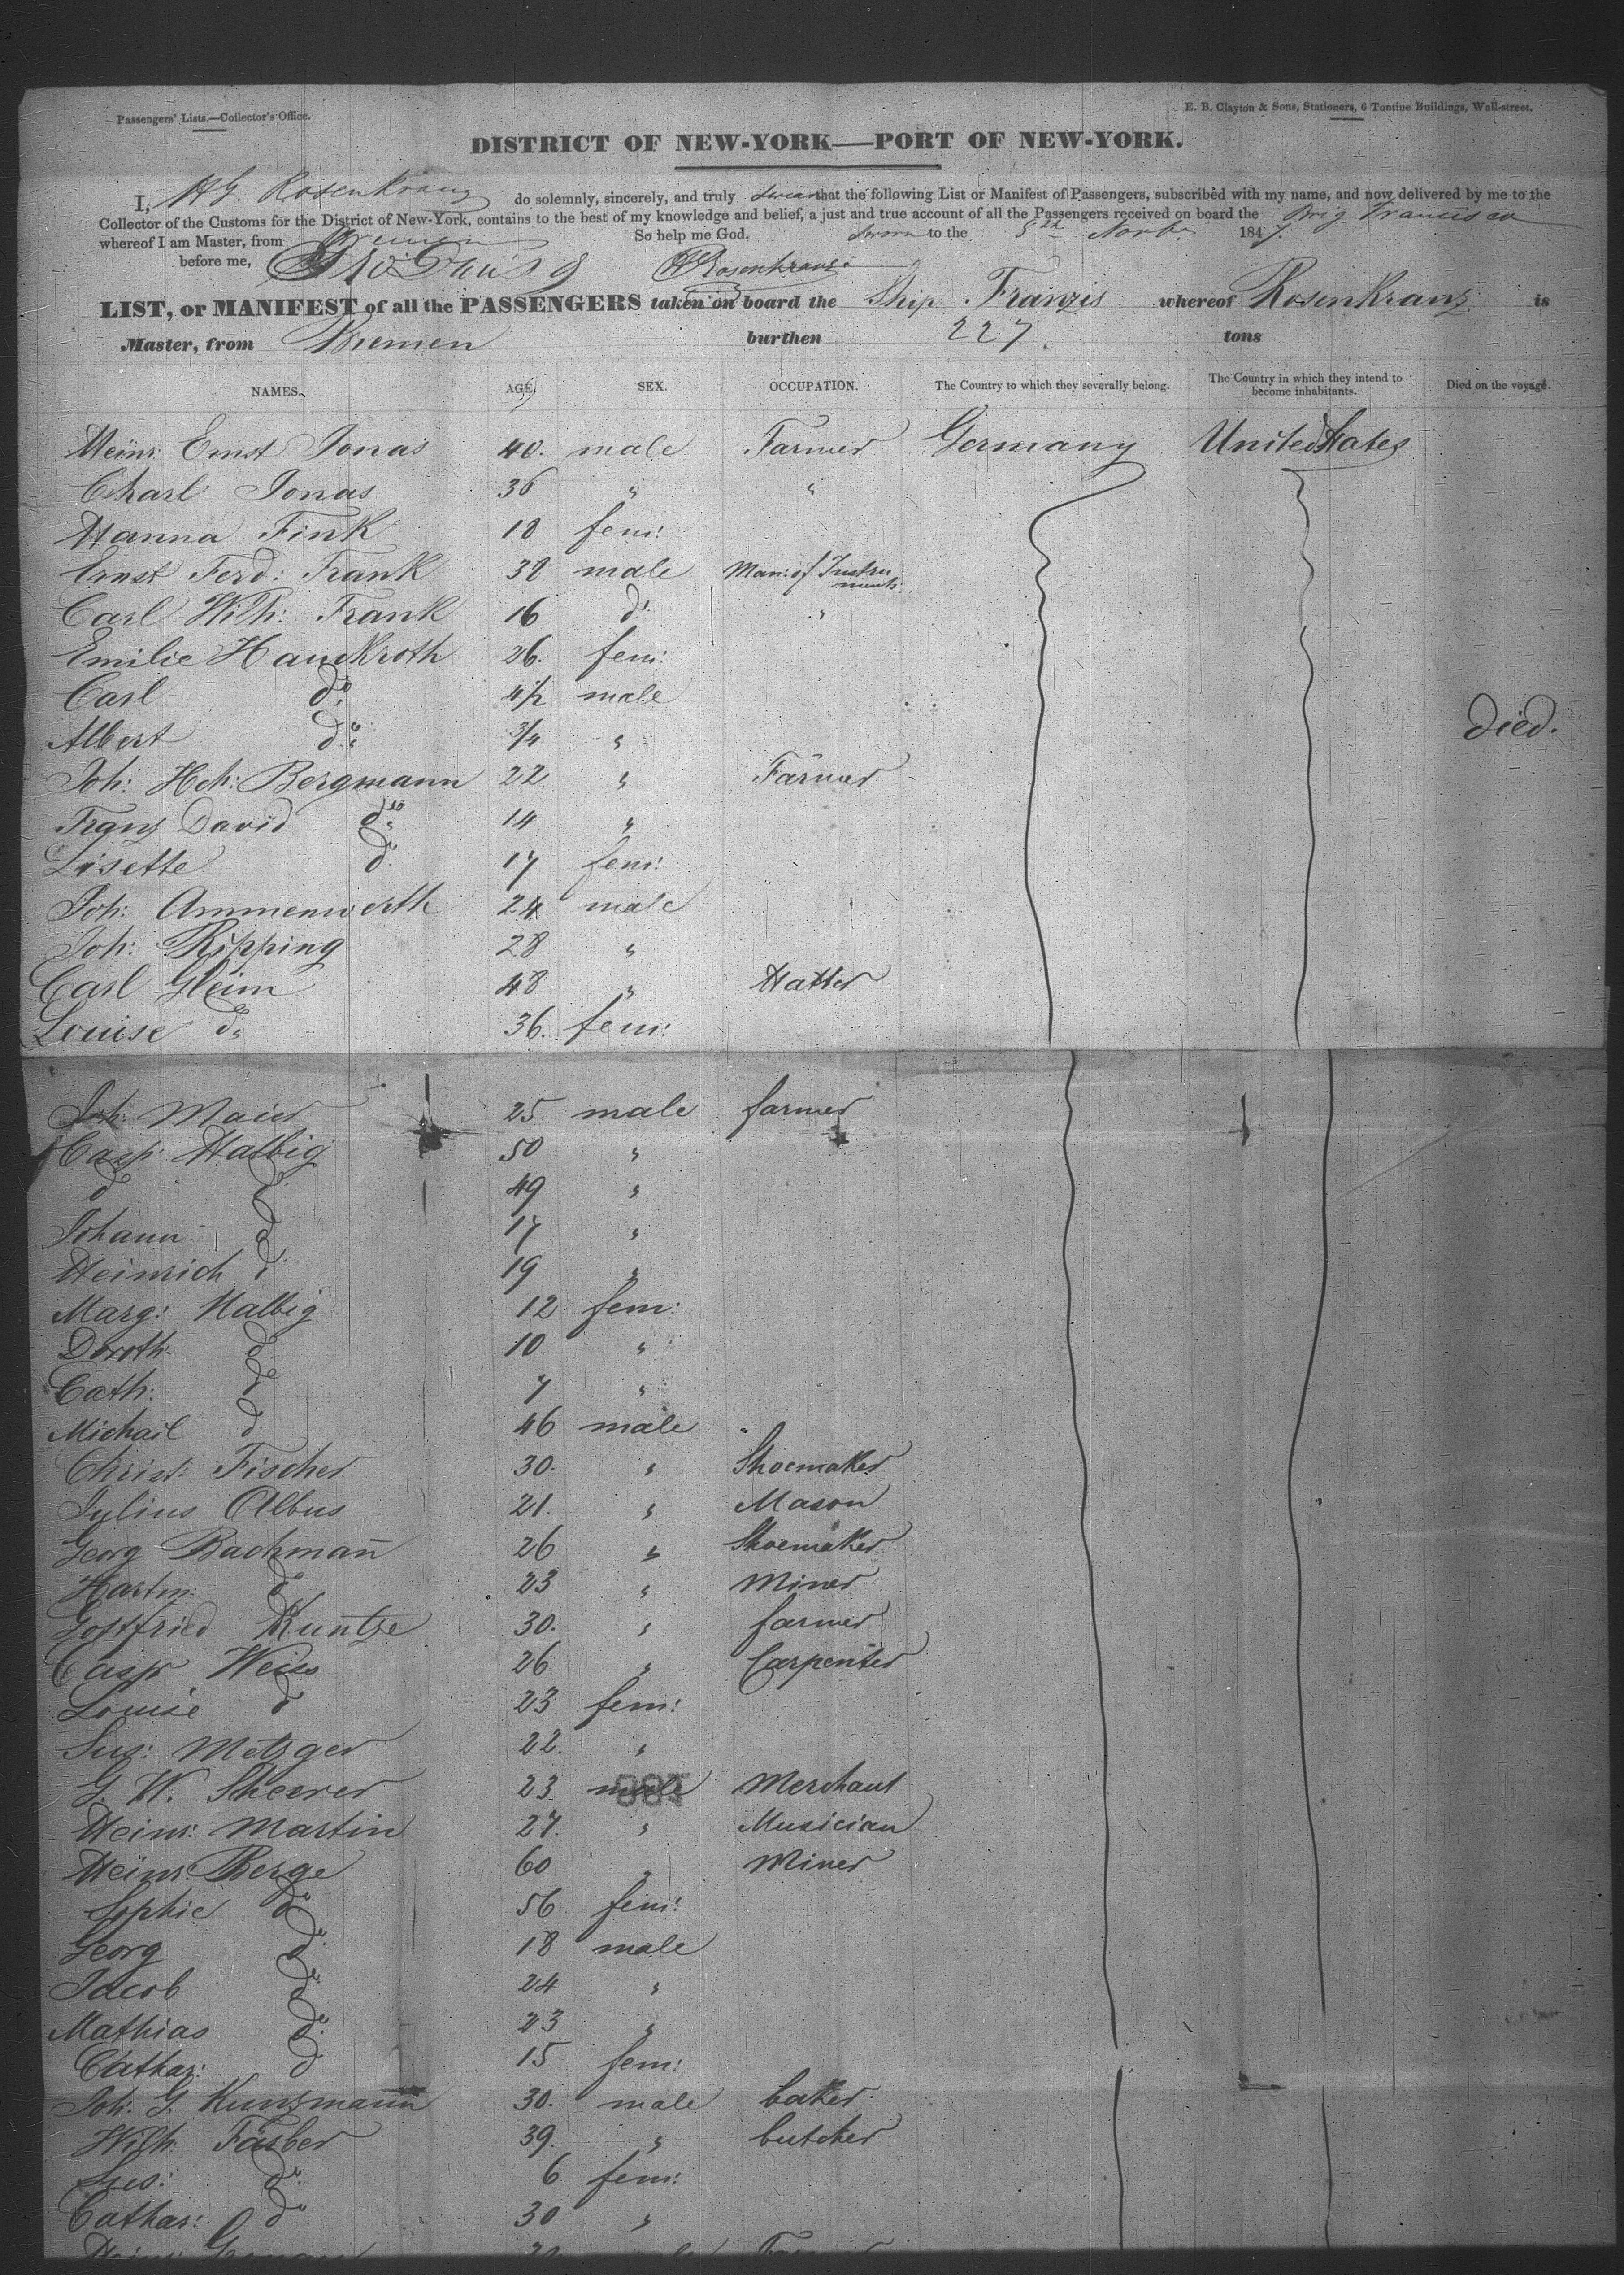 Passengers' Lists.—Collector's Office.
E. B. Clayton & Sons, Stationers, 6 Tontine Buildings, Wall-street.
DISTRICT OF NEW-YORK—PORT OF NEW-YORK.
I, HG. Rosenkranz do solemnly, sincerely, and truly swear that the following List or Manifest of Passengers, subscribed with my name, and now delivered by me to the
Collector of the Customs for the District of New-York, contains to the best of my knowledge and belief, a just and true account of all the Passengers received on board the Brig Francisca
whereof I am Master, from Bremen So help me God. Sworn to the 5th Novbr 1847.
before me, HG Rosenkranz
LIST, or MANIFEST of all the PASSENGERS taken on board the Ship Franzis whereof Rosenkranz is
Master, from Bremen burthen 227. tons
NAMES. AGE SEX. OCCUPATION. The Country to which they severally belong. The Country in which they intend to become inhabitants. Died on the voyage.
Heinr: Ernst Jonas 40. male Farmer Germany United States
Charl Jonas 36 " "
Hanna Fink 18 fem:
Ernst Ferd: Frank 38 male Man: of Instruments.
Carl Wilh: Frank 16 do "
Emilie Hauckroth 26. fem:
Carl do 4 1/2 male
Albert do 3/4 " died.
Joh: Hch: Bergmann 22 " Farmer
Franz David do 14 "
Lisette do 17 fem:
Joh: Ammenwerth 24 male
Joh: Ripping 28 "
Carl Gleim 48 " Hatter
Louise do 36. fem:
Joh: Maier 25 male farmer
Casp: Halbig 50 "
do do 49 "
Johann do 17 "
Heinrich do 19 "
Marg: Halbig 12 fem:
Doroth: do 10 "
Cath: do 7 "
Michail do 46 male
Christ: Fischer 30. " Shoemaker
Julius Albus 21. " Mason
Georg Bachman̄ 26 " Shoemaker
Hartm: do 23 " Miner
Gottfried Kuntze 30. " farmer
Casp Weiss 26 " Carpenter
Louise do 23 fem:
Sus: Metzger 22. "
G. W. Sheerer 23 male Merchant
Heinr: Martin 27. " Musician
Heinr: Berge 60 " Miner
Sophie do 56 fem:
Georg do 18 male
Jacob do 24 "
Mathias do 23 "
Cathar: do 15 fem:
Joh: G. Kunzmann 30. male baker
Wilh: Färber 39. " butcher
Sus: do 6 fem:
Cathar: do 30 "